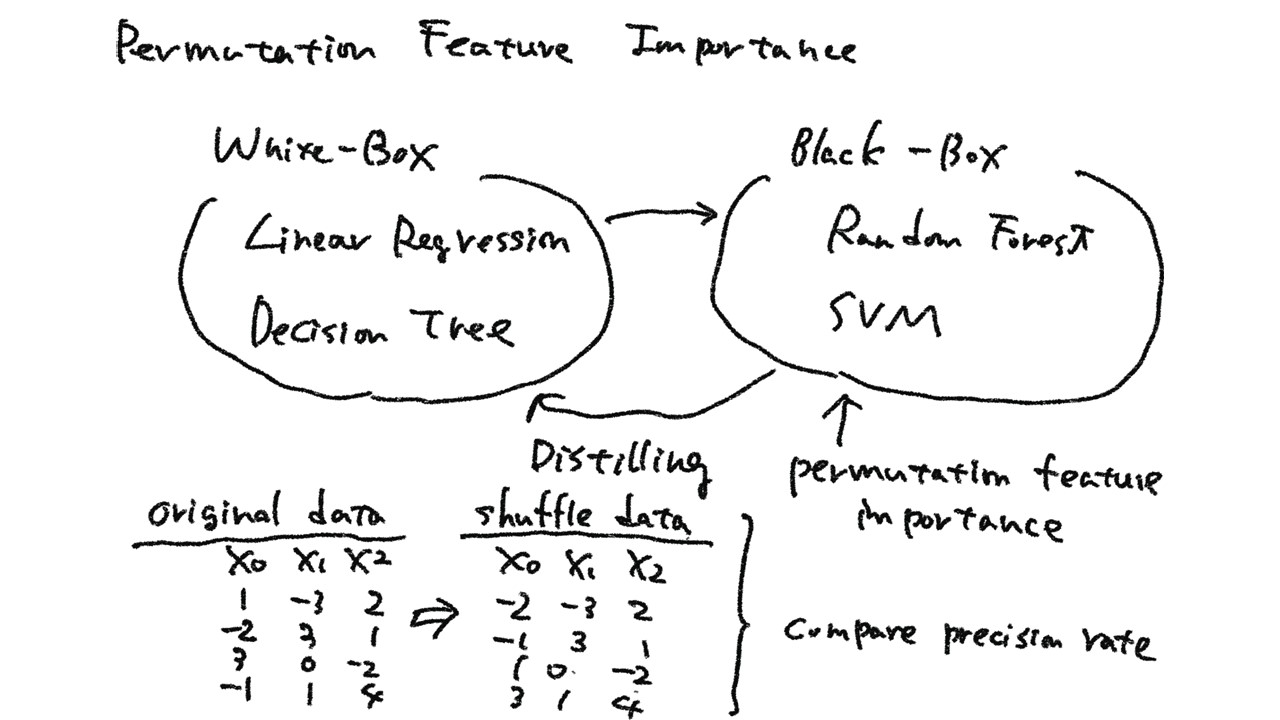 Permutation Feature Importance
White-Box
Linear Regression
Decision Tree
Black-Box
Random Forest
SVM
Distilling
permutation feature
importance
original data
X0 X1 X2
1 -3 2
-2 3 1
3 0 -2
-1 1 4
shuffle data
X0 X1 X2
-2 -3 2
-1 3 1
1 0 -2
3 1 4
Compare precision rate